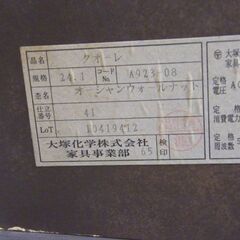 品名 クオーレ
規格 24.1 コードNo A923-08
塗名 オーシャンウォールナット
仕立番号 41
LoT. 10419472
大塚化学株式会社
家具事業部
検印 65
大塚
家具
定格
電圧 AC
定格
消費電力
定格
周波数 5